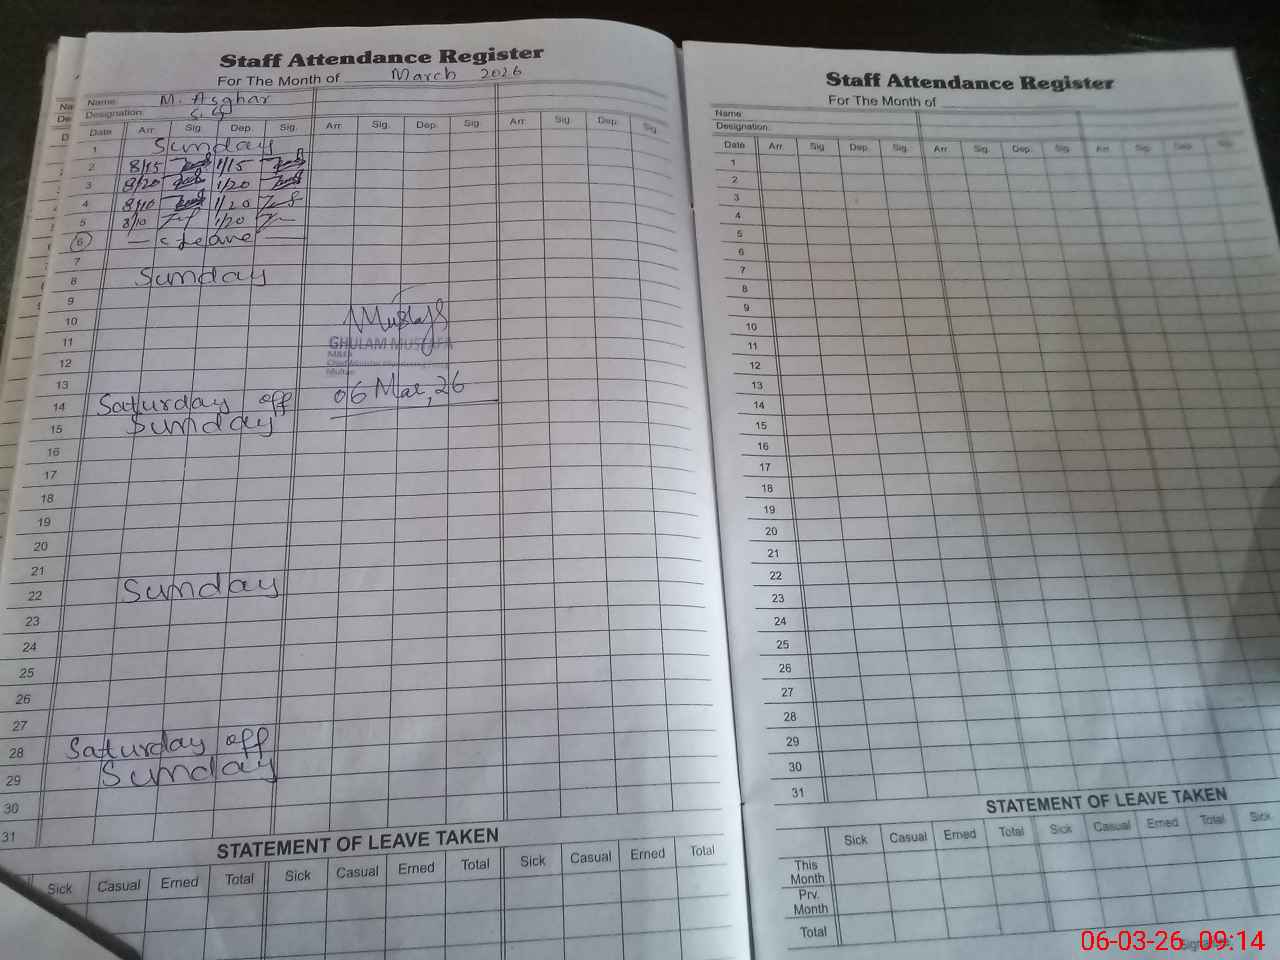 Staff Attendance Register
For The Month of March 2026
Name: M. Asghar
Designation:
Date Arr. Sig. Dep. Sig. Arr. Sig. Dep. Sig. Arr. Sig. Dep. Sig.
1 Sunday
2 8/15 1/15
3 8/20 1/20
4 8/10 1/20
5 8/10 1/20
6 — c Leave —
7
8 Sunday
9
10
11
12
13
14 Saturday off
15 Sunday
16
17
18
19
20
21
22 Sunday
23
24
25
26
27
28 Saturday off
29 Sunday
30
31
GHULAM MUSTAFA
06 Mar, 26
STATEMENT OF LEAVE TAKEN
Sick Casual Erned Total Sick Casual Erned Total Sick Casual Erned Total
Staff Attendance Register
For The Month of
Name:
Designation:
Date Arr. Sig. Dep. Sig. Arr. Sig. Dep. Sig. Arr. Sig. Dep. Sig.
1
2
3
4
5
6
7
8
9
10
11
12
13
14
15
16
17
18
19
20
21
22
23
24
25
26
27
28
29
30
31
STATEMENT OF LEAVE TAKEN
Sick Casual Erned Total Sick Casual Erned Total Sick
This Month
Prv. Month
Total
06-03-26 09:14